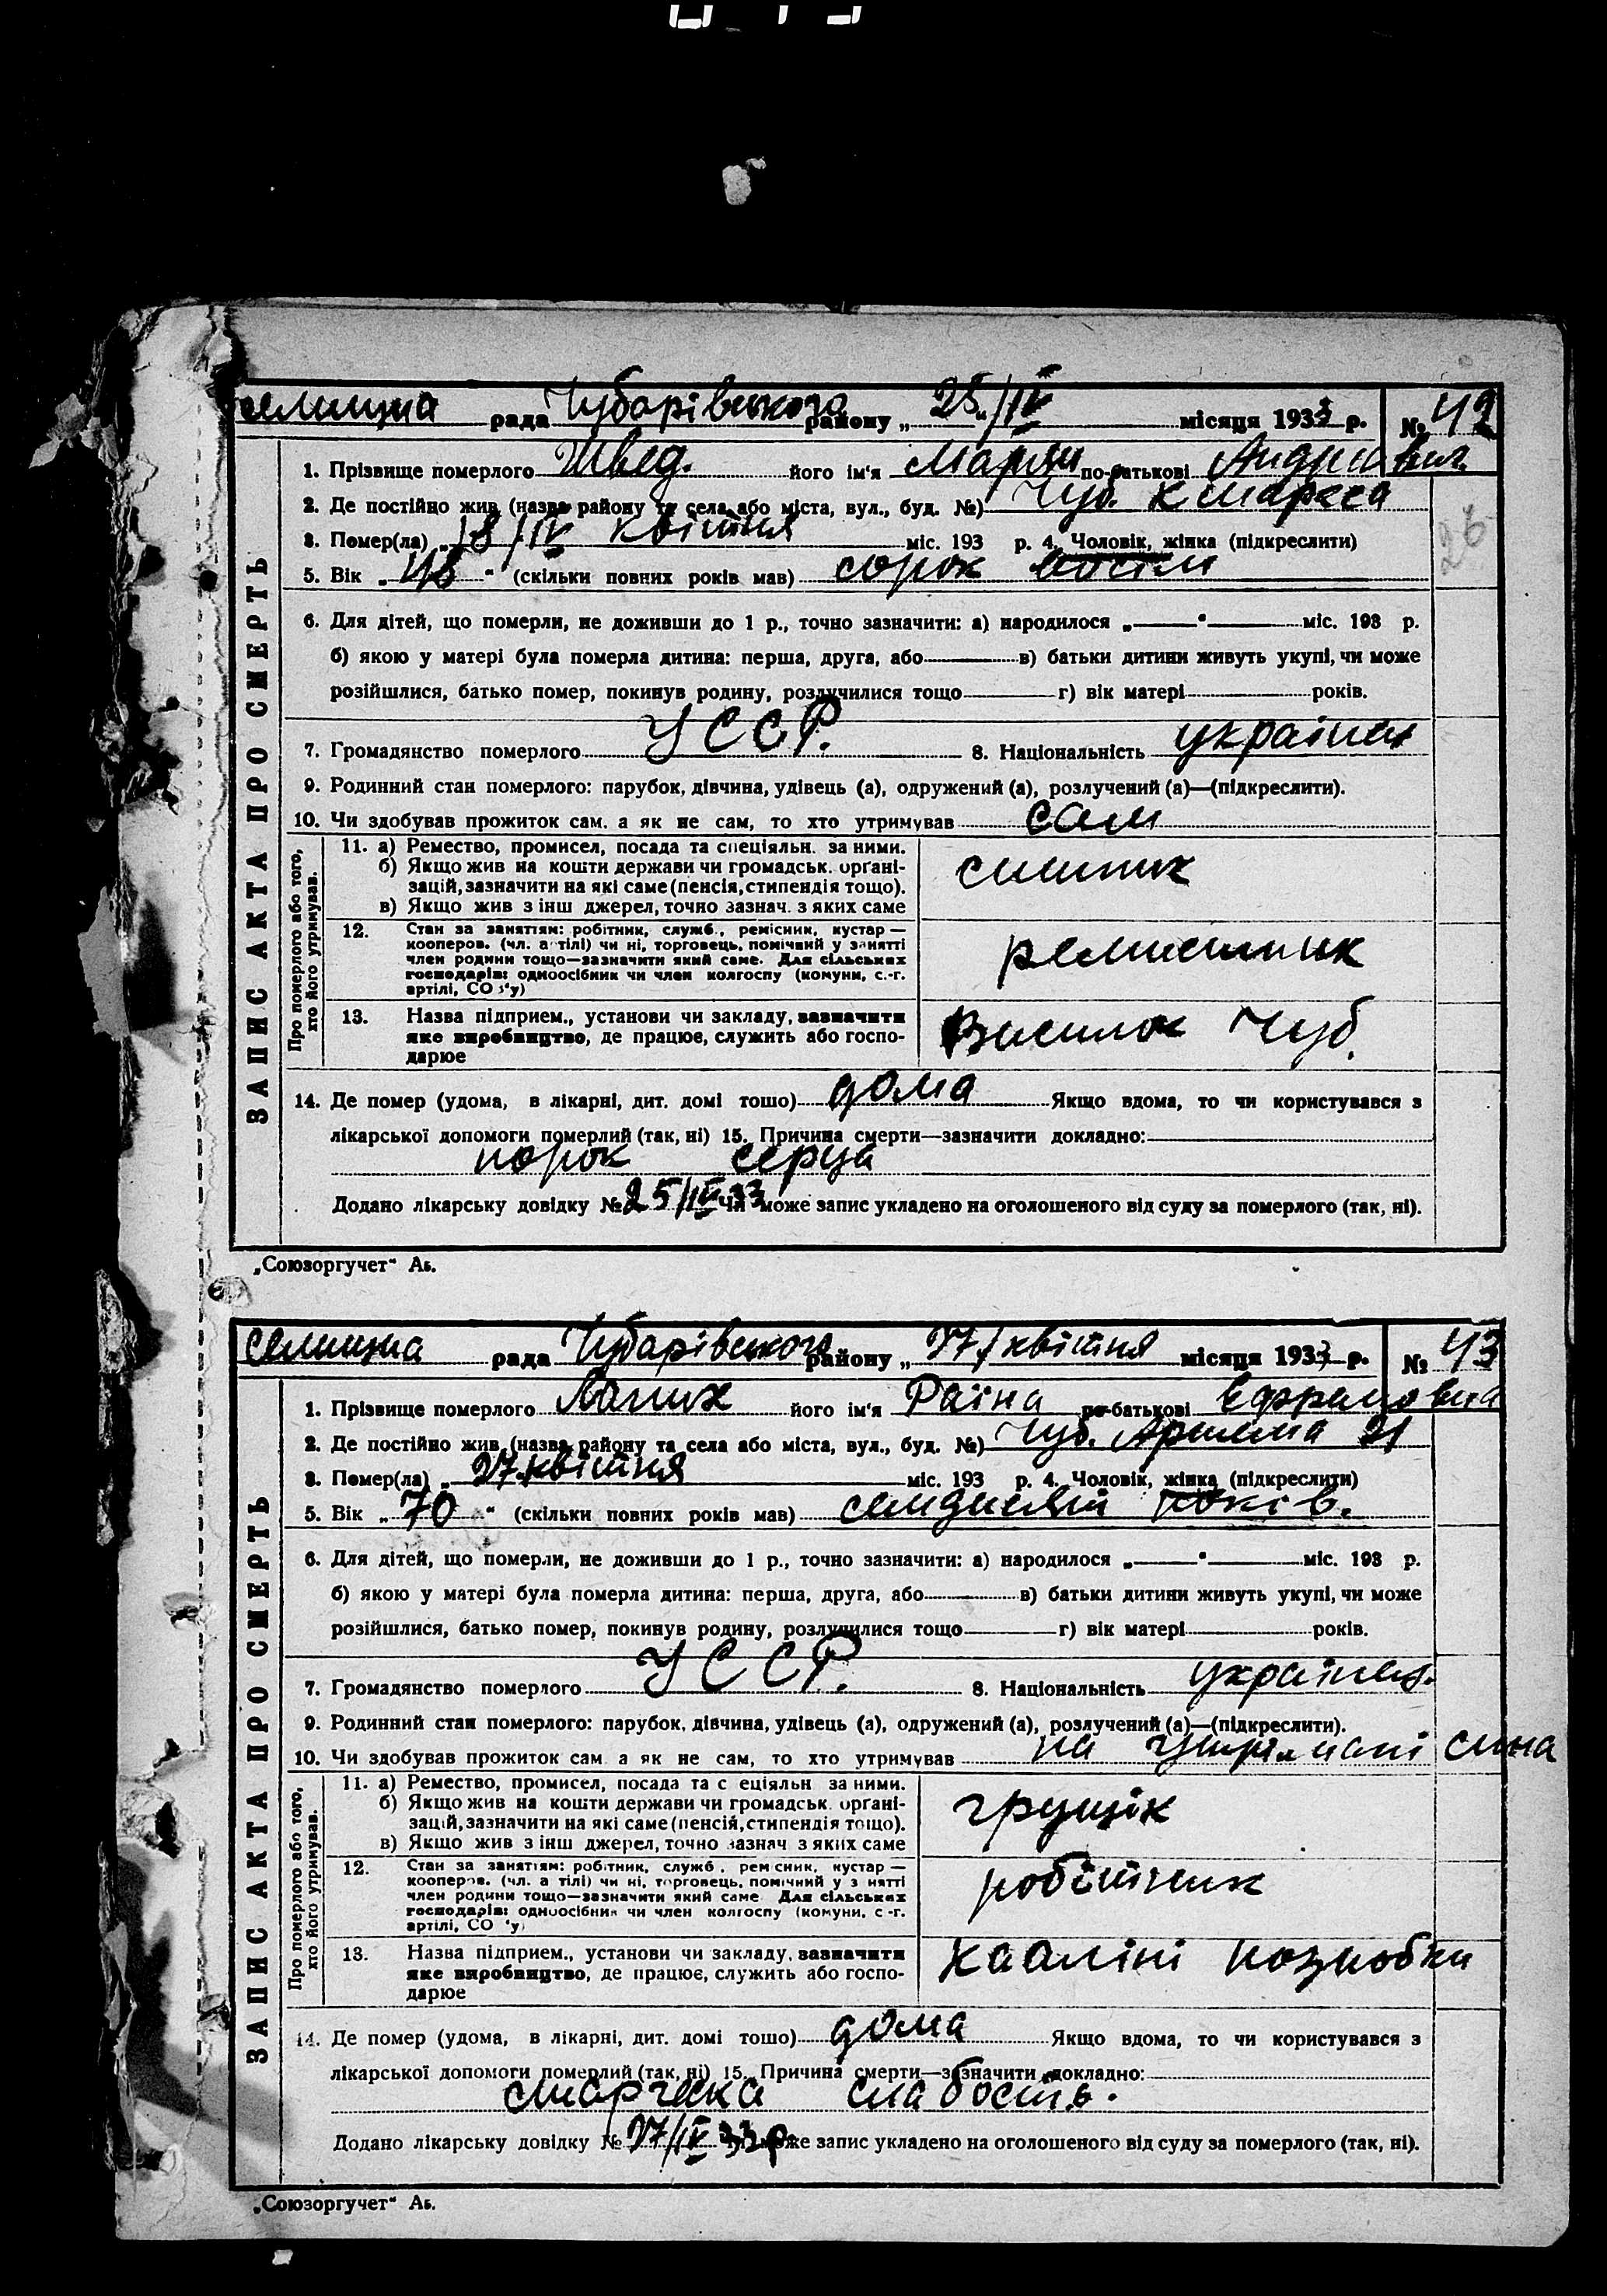 селищна рада Чубарівського району „ 25/IV місяця 1933 р. № 42
ЗАПИС АКТА ПРО СМЕРТЬ
1. Прізвище померлого Швед. його ім'я по-батькові
2. Де постійно жив (назва району та села або міста, вул., буд. №) Чуб. К Маркса
26
3. Помер(ла) „ 18/IV квітня міс. 193 р. 4. Чоловік, жінка (підкреслити)
5. Вік „ 48 “ (скільки повних років мав) сорок восім
6. Для дітей, що померли, не доживши до 1 р., точно зазначити: а) народилося „ “ міс. 193 р.
б) якою у матері була померла дитина: перша, друга, або в) батьки дитини живуть укупі, чи може
розійшлися, батько помер, покинув родину, розлучилися тощо г) вік матері років.
7. Громадянство померлого УССР. 8. Національність
9. Родинний стан померлого: парубок, дівчина, удівець (а), одружений (а), розлучений (а)—(підкреслити).
10. Чи здобував прожиток сам, а як не сам, то хто утримував сам
Про померлого або того, хто його утримував.
11. а) Ремество, промисел, посада та спеціяльн. за ними.
б) Якщо жив на кошти держави чи громадськ. органі-
зацій, зазначити на які саме (пенсія, стипендія тощо).
в) Якщо жив з інш джерел, точно зазнач. з яких саме
12. Стан за занятіям: робітник, служб., ремісник, кустар —
кооперов. (чл. артілі) чи ні, торговець, помічний у занятті
член родини тощо—зазначити який саме. Для сільських
господарів: одноосібник чи член колгоспу (комуни, с.-г.
артілі, СОЗ'у)
13. Назва підприєм., установи чи закладу, зазначити
яке виробництво, де працює, служить або госпо-
дарює
Чуб.
14. Де помер (удома, в лікарні, дит. домі тощо) дома Якщо вдома, то чи користувався з
лікарської допомоги померлий (так, ні) 15. Причина смерти—зазначити докладно:
порок серца
Додано лікарську довідку № 25/IV 33 Чи може запис укладено на оголошеного від суду за померлого (так, ні).
„Союзоргучет“ Аь.
селищна рада Чубарівського району „ 27/квітня місяця 1933 р. № 43
ЗАПИС АКТА ПРО СМЕРТЬ
1. Прізвище померлого його ім'я Раіна по-батькові
2. Де постійно жив (назва району та села або міста, вул., буд. №) Чуб. Артема 21
3. Помер(ла) „ 27 квітня міс. 193 р. 4. Чоловік, жінка (підкреслити)
5. Вік „ 70 “ (скільки повних років мав) семдисят років.
6. Для дітей, що померли, не доживши до 1 р., точно зазначити: а) народилося „ “ міс. 193 р.
б) якою у матері була померла дитина: перша, друга, або в) батьки дитини живуть укупі, чи може
розійшлися, батько помер, покинув родину, розлучилися тощо г) вік матері років.
7. Громадянство померлого УССР. 8. Національність
9. Родинний стан померлого: парубок, дівчина, удівець (а), одружений (а), розлучений (а)—(підкреслити).
10. Чи здобував прожиток сам а як не сам, то хто утримував на сина
Про померлого або того, хто його утримував.
11. а) Ремество, промисел, посада та спеціяльн за ними.
б) Якщо жив на кошти держави чи громадськ. органі-
зацій, зазначити на які саме (пенсія, стипендія тощо).
в) Якщо жив з інш джерел, точно зазнач з яких саме
грущік
12. Стан за занятіям: робітник, служб., ремісник, кустар —
кооперов. (чл. артілі) чи ні, торговець, помічний у занятті
член родини тощо—зазначити який саме Для сільських
господарів: одноосібник чи член колгоспу (комуни, с.-г.
артілі, СОЗ'у)
робітник
13. Назва підприєм., установи чи закладу, зазначити
яке виробництво, де працює, служить або госпо-
дарює
14. Де помер (удома, в лікарні, дит. домі тощо) дома Якщо вдома, то чи користувався з
лікарської допомоги померлий (так, ні) 15. Причина смерти—зазначити докладно:
старческа слабость.
Додано лікарську довідку № 27/IV 33 р. Чи може запис укладено на оголошеного від суду за померлого (так, ні).
„Союзоргучет“ Аь.